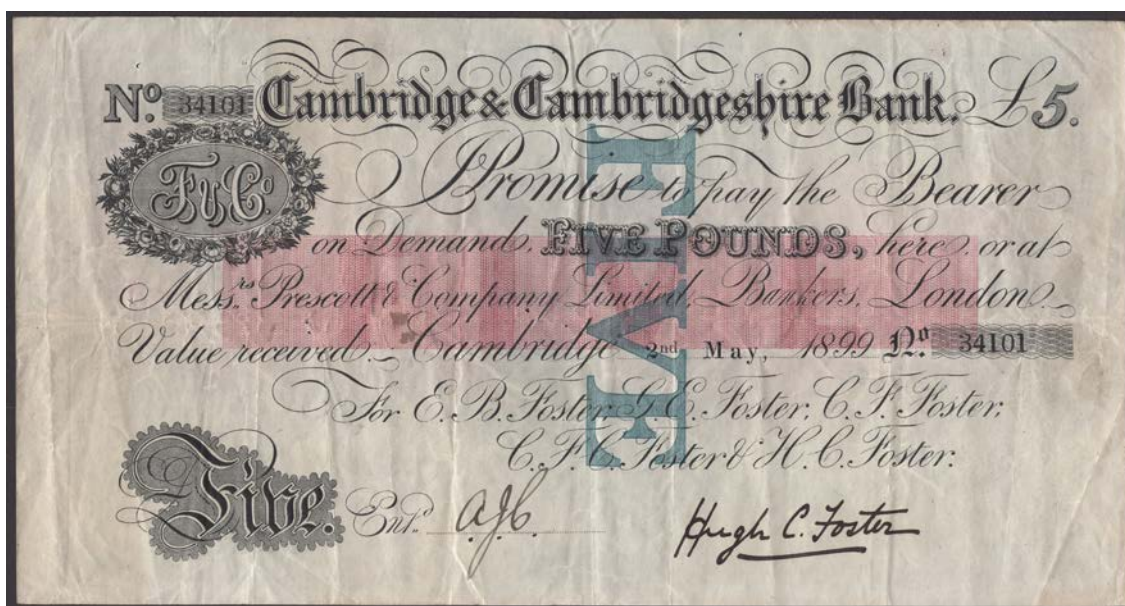 No. 34101 Cambridge & Cambridgeshire Bank. £5.
F & Co.
Promise to pay the Bearer
on Demand. FIVE POUNDS, here, or at
Messrs. Prescott & Company Limited, Bankers, London
Value received. Cambridge 2nd May, 1899 No. 34101
For E. B. Foster, G. E. Foster, C. F. Foster,
C. F. C. Foster & H. C. Foster.
£ Five.
Entd. A.J.C. Hugh C. Foster
FIVE